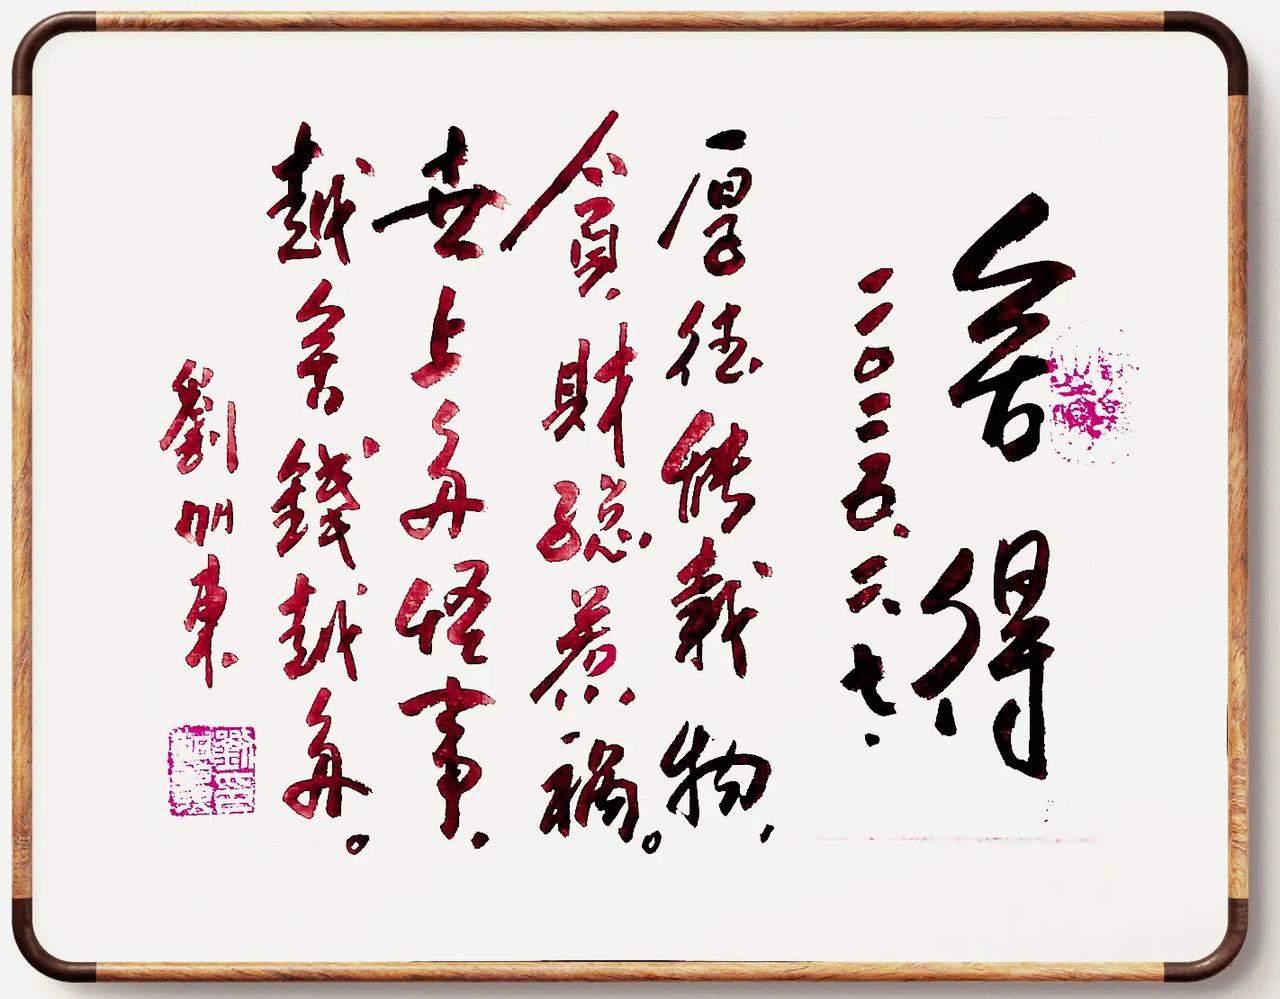 舍得
二〇二五.六.七.
厚德能載物,
貪財總惹禍。
世上多怪事,
越舍錢越多。
劉加東